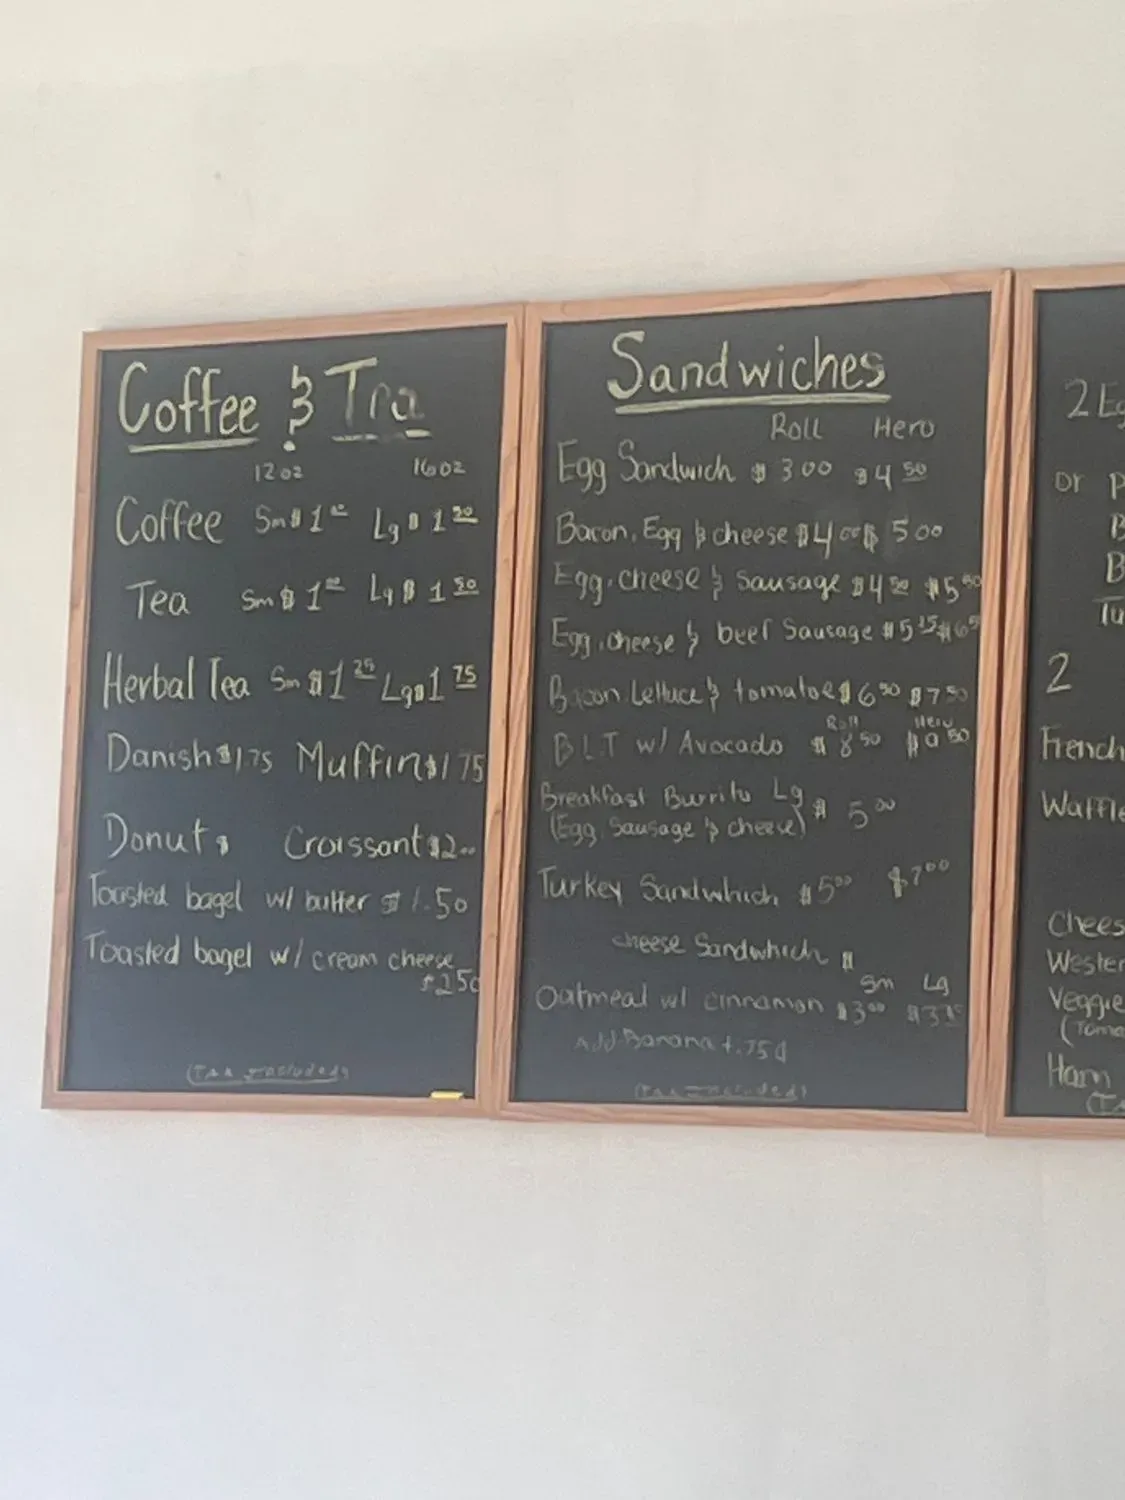 Coffee & Tea
12oz 16oz
Coffee Sm $1 00 Lg $1 50
Tea Sm $1 00 Lg $1 50
Herbal Tea Sm $1 25 Lg $1 75
Danish $1.75 Muffin $1 75
Donut $ Croissant $2 00
Toasted bagel w/ butter $1.50
Toasted bagel w/ cream cheese
(Tax Included)
Sandwiches
Roll Hero
Egg Sandwich $3 00 $4 50
Bacon, Egg & cheese $4 00 $5 00
Egg, cheese & Sausage $4 50 $5 50
Egg, cheese & beef Sausage
Bacon, Lettuce & tomatoe $6 50 $7 50
Roll Hero
BLT w/ Avocado $8 50 $9 50
Breakfast Burrito Lg $5 00
(Egg, Sausage & cheese)
Turkey Sandwhich $5 00 $7 00
cheese Sandwhich $
Sm Lg
Oatmeal w/ cinnamon $3 00
Add Banana +.75¢
(Tax Included)
2 Eg
or P
B
B
Tu
2
French
Waffle
Chees
Wester
Veggie
(Toma
Ham
(Ta